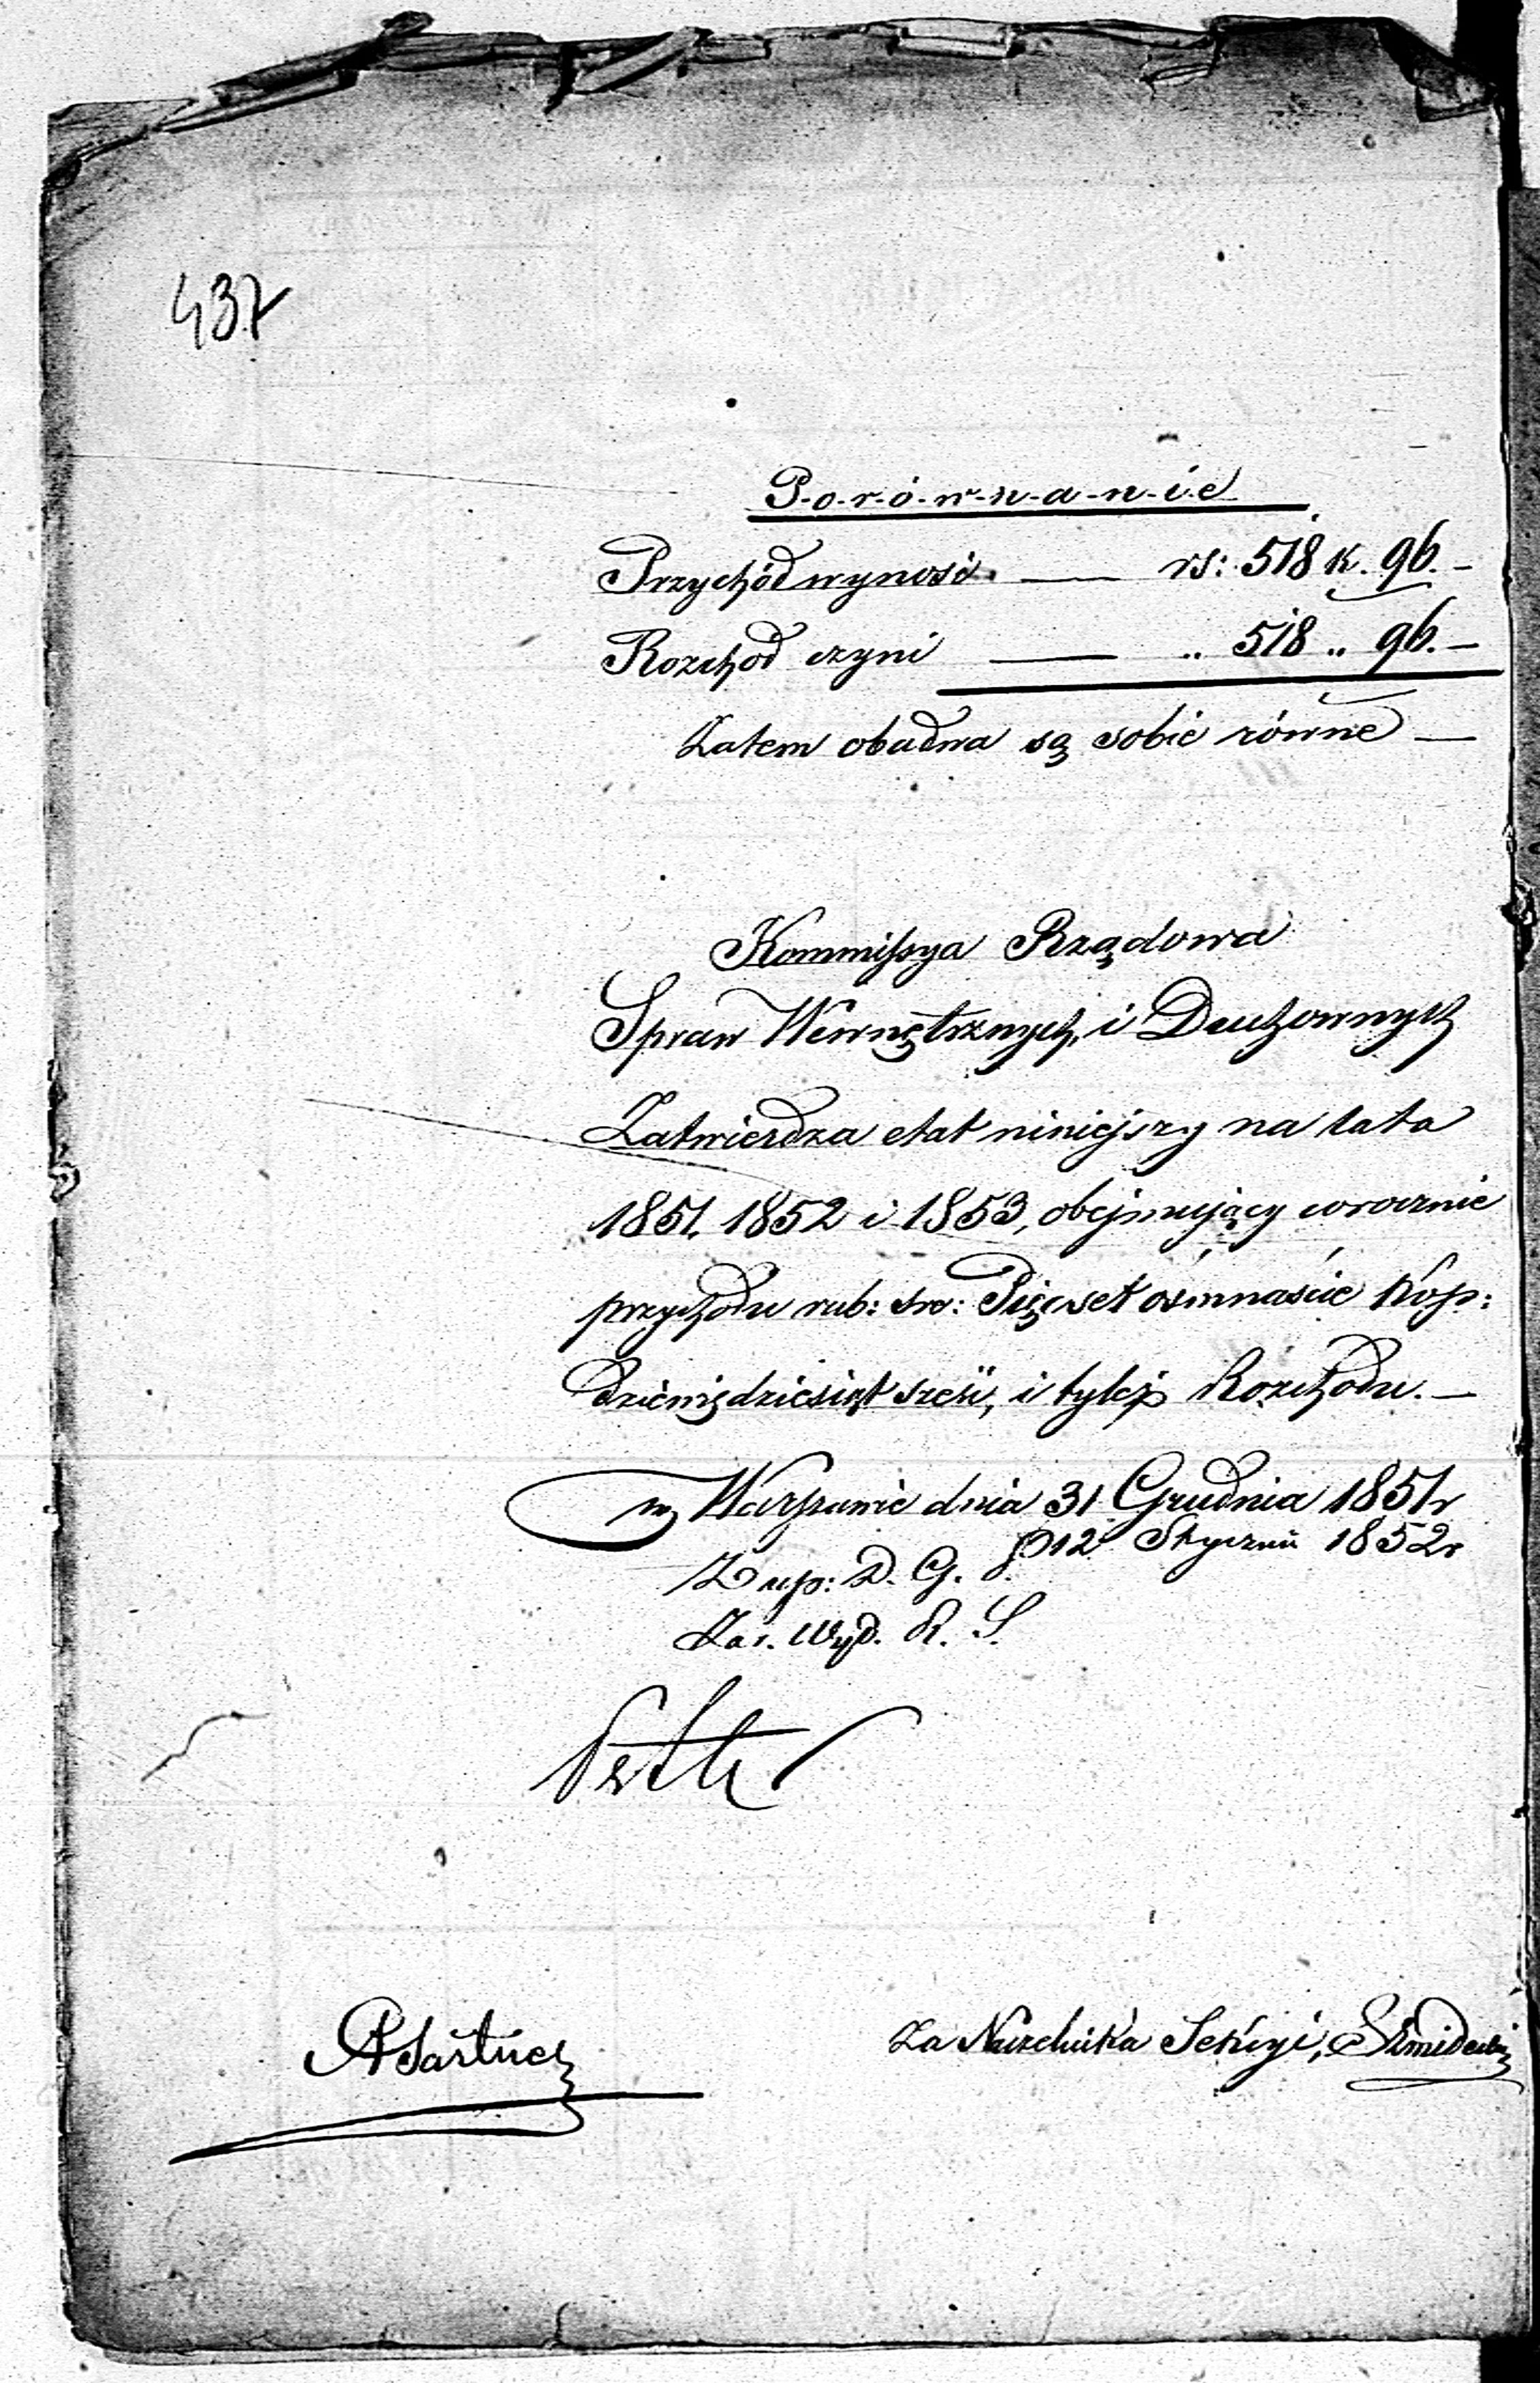 437
P-o-r-ó-w-n-a-n-i-e
Przychód wynosi — rs: 518 k. 96. –
Rozchód czyni — „ 518 „ 96. –
Zatem obadwa są sobie równe —
Kommissya Rządowa
Spraw Wewnętrznych, i Duchownych
Zatwierdza etat niniejszy na lata
1851. 1852 i 1853, obejmujący corocznie
przychodu rub: sre: Pięćset ośmnaście kop:
dziewięćdziesiąt sześć, i tyleż Rozchodu. —
w Warszawie dnia 31 Grudnia 1851 r
12 Stycznia 1852 r
Z up: D. G. J.
Za r. Wyd. R. S.
Za Naczelnika Sekcyi,